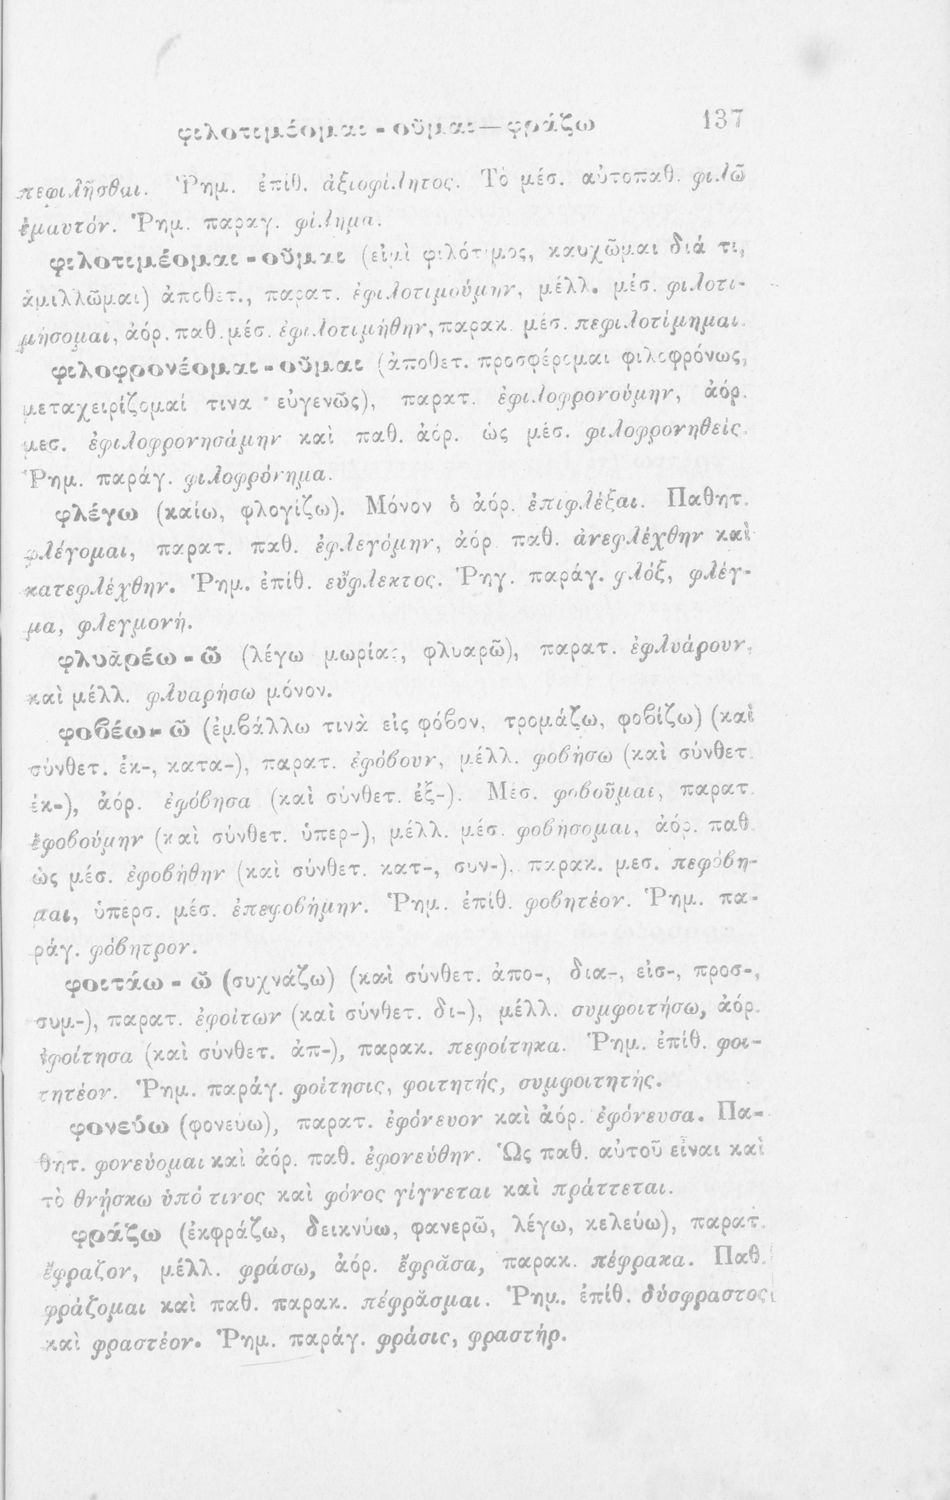 φιλοτιμέομαι - οῦμαι — φράζω 137
πεφιλῆσθαι. Ῥημ. ἐπίθ. ἀξιοφίλητος. Τὸ μέσ. αὐτοπαθ. φιλῶ
ἐμαυτόν. Ῥημ. παραγ. φίλημα.
φιλοτιμέομαι - οῦμαι (εἰμὶ φιλότιμος, καυχῶμαι διά τι,
ἁμιλλῶμαι) ἀποθετ., παρατ. ἐφιλοτιμούμην, μέλλ. μέσ. φιλοτι-
μήσομαι, ἀόρ. παθ. μέσ. ἐφιλοτιμήθην, παρακ. μέσ. πεφιλοτίμημαι.
φιλοφρονέομαι - οῦμαι (ἀποθετ. προσφέρομαι φιλοφρόνως,
μεταχειρίζομαί τινα εὐγενῶς), παρατ. ἐφιλοφρονούμην, ἀόρ.
μεσ. ἐφιλοφρονησάμην καὶ παθ. ἀόρ. ὡς μέσ. φιλοφρονηθείς.
Ῥημ. παράγ. φιλοφρόνημα.
φλέγω (καίω, φλογίζω). Μόνον ὁ ἀόρ. ἐπιφλέξαι. Παθητ.
φλέγομαι, παρατ. παθ. ἐφλεγόμην, ἀόρ παθ. ἀνεφλέχθην καὶ
κατεφλέχθην. Ῥημ. ἐπίθ. εὔφλεκτος. Ῥηγ. παράγ. φλόξ, φλέγ-
μα, φλεγμονή.
φλυᾱρέω - ῶ (λέγω μωρίας, φλυαρῶ), παρατ. ἐφλυάρουν,
καὶ μέλλ. φλυαρήσω μόνον.
φοβέω - ῶ (ἐμβάλλω τινὰ εἰς φόβον, τρομάζω, φοβίζω) (καὶ
σύνθετ. ἐκ-, κατα-), παρατ. ἐφόβουν, μέλλ. φοβήσω (καὶ σύνθετ.
ἐκ-), ἀόρ. ἐφόβησα (καὶ σύνθετ. ἐξ-). Μέσ. φοβοῦμαι, παρατ.
ἐφοβούμην (καὶ σύνθετ. ὑπερ-), μέλλ. μέσ. φοβήσομαι, ἀόρ. παθ.
ὡς μέσ. ἐφοβήθην (καὶ σύνθετ. κατ-, συν-), παρακ. μεσ. πεφόβη-
μαι, ὑπερσ. μέσ. ἐπεφοβήμην. Ῥημ. ἐπίθ. φοβητέον. Ῥημ. πα-
ράγ. φόβητρον.
φοιτάω - ῶ (συχνάζω) (καὶ σύνθετ. ἀπο-, δια-, εἰσ-, προσ-,
συμ-), παρατ. ἐφοίτων (καὶ σύνθετ. δι-), μέλλ. συμφοιτήσω, ἀόρ.
ἐφοίτησα (καὶ σύνθετ. ἀπ-), παρακ. πεφοίτηκα. Ῥημ. ἐπίθ. φοι-
τητέον. Ῥημ. παράγ. φοίτησις, φοιτητής, συμφοιτητής.
φονεύω (φονεύω), παρατ. ἐφόνευον καὶ ἀόρ. ἐφόνευσα. Πα-
θητ. φονεύομαι καὶ ἀόρ. παθ. ἐφονεύθην. Ὡς παθ. αὐτοῦ εἶναι καὶ
τὸ θνῄσκω ὑπό τινος καὶ φόνος γίγνεται καὶ πράττεται.
φράζω (ἐκφράζω, δεικνύω, φανερῶ, λέγω, κελεύω), παρατ.
ἔφραζον, μέλλ. φράσω, ἀόρ. ἔφρᾰσα, παρακ. πέφρακα. Παθ.
φράζομαι καὶ παθ. παρακ. πέφρᾰσμαι. Ῥημ. ἐπίθ. δύσφραστος
καὶ φραστέον. Ῥημ. παράγ. φράσις, φραστήρ.